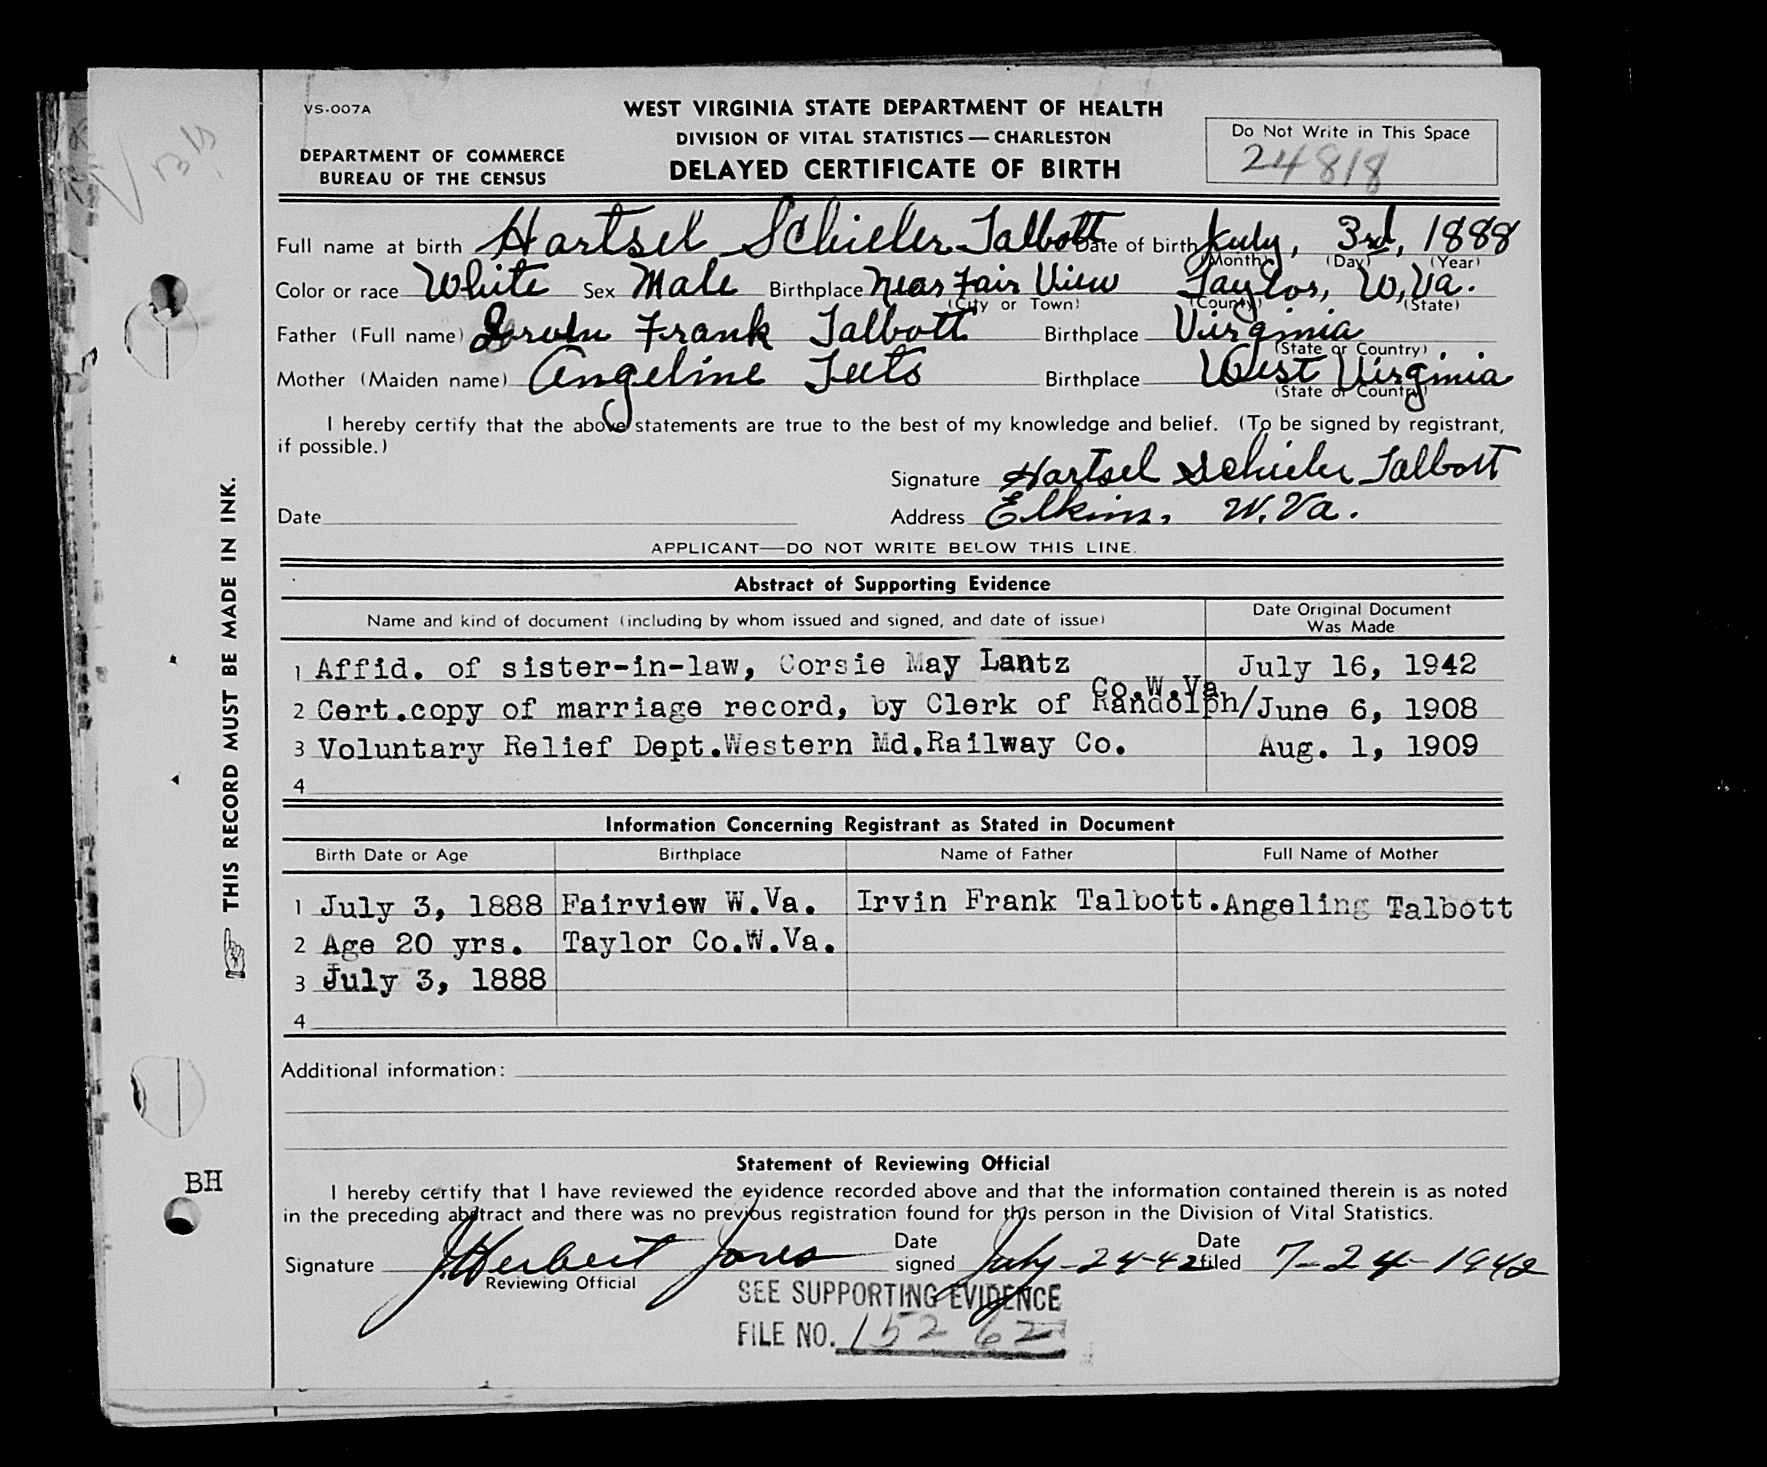 VS-007A
WEST VIRGINIA STATE DEPARTMENT OF HEALTH
DIVISION OF VITAL STATISTICS — CHARLESTON
DELAYED CERTIFICATE OF BIRTH
DEPARTMENT OF COMMERCE
BUREAU OF THE CENSUS
Do Not Write in This Space
24818
Full name at birth Hartsel Schieler Talbott Date of birth July, 3rd, 1888
(Month) (Day) (Year)
Color or race White Sex Male Birthplace Near Fair View Taylor, W,Va.
(City or Town) (County) (State)
Father (Full name) Irvin Frank Talbott Birthplace Virginia
(State or Country)
Mother (Maiden name) Angeline Teets Birthplace West Virginia
(State or Country)
I hereby certify that the above statements are true to the best of my knowledge and belief. (To be signed by registrant,
if possible.)
Signature Hartsel Schieler Talbott
Date Address Elkins, W.Va.
APPLICANT—DO NOT WRITE BELOW THIS LINE.
Abstract of Supporting Evidence
Name and kind of document (including by whom issued and signed, and date of issue) Date Original Document
Was Made
1 Affid. of sister-in-law, Corsie May Lantz July 16, 1942
Co.W.Va
2 Cert.copy of marriage record, by Clerk of Randolph/ June 6, 1908
3 Voluntary Relief Dept.Western Md.Railway Co. Aug. 1, 1909
4
Information Concerning Registrant as Stated in Document
Birth Date or Age Birthplace Name of Father Full Name of Mother
1 July 3, 1888 Fairview W.Va. Irvin Frank Talbott. Angeling Talbott
2 Age 20 yrs. Taylor Co.W.Va.
3 July 3, 1888
4
Additional information:
Statement of Reviewing Official
I hereby certify that I have reviewed the evidence recorded above and that the information contained therein is as noted
in the preceding abstract and there was no previous registration found for this person in the Division of Vital Statistics.
Signature J. Herbert Jones Date signed July-24-42 Date filed 7-24-1942
Reviewing Official
SEE SUPPORTING EVIDENCE
FILE NO. 15262
THIS RECORD MUST BE MADE IN INK.
BH